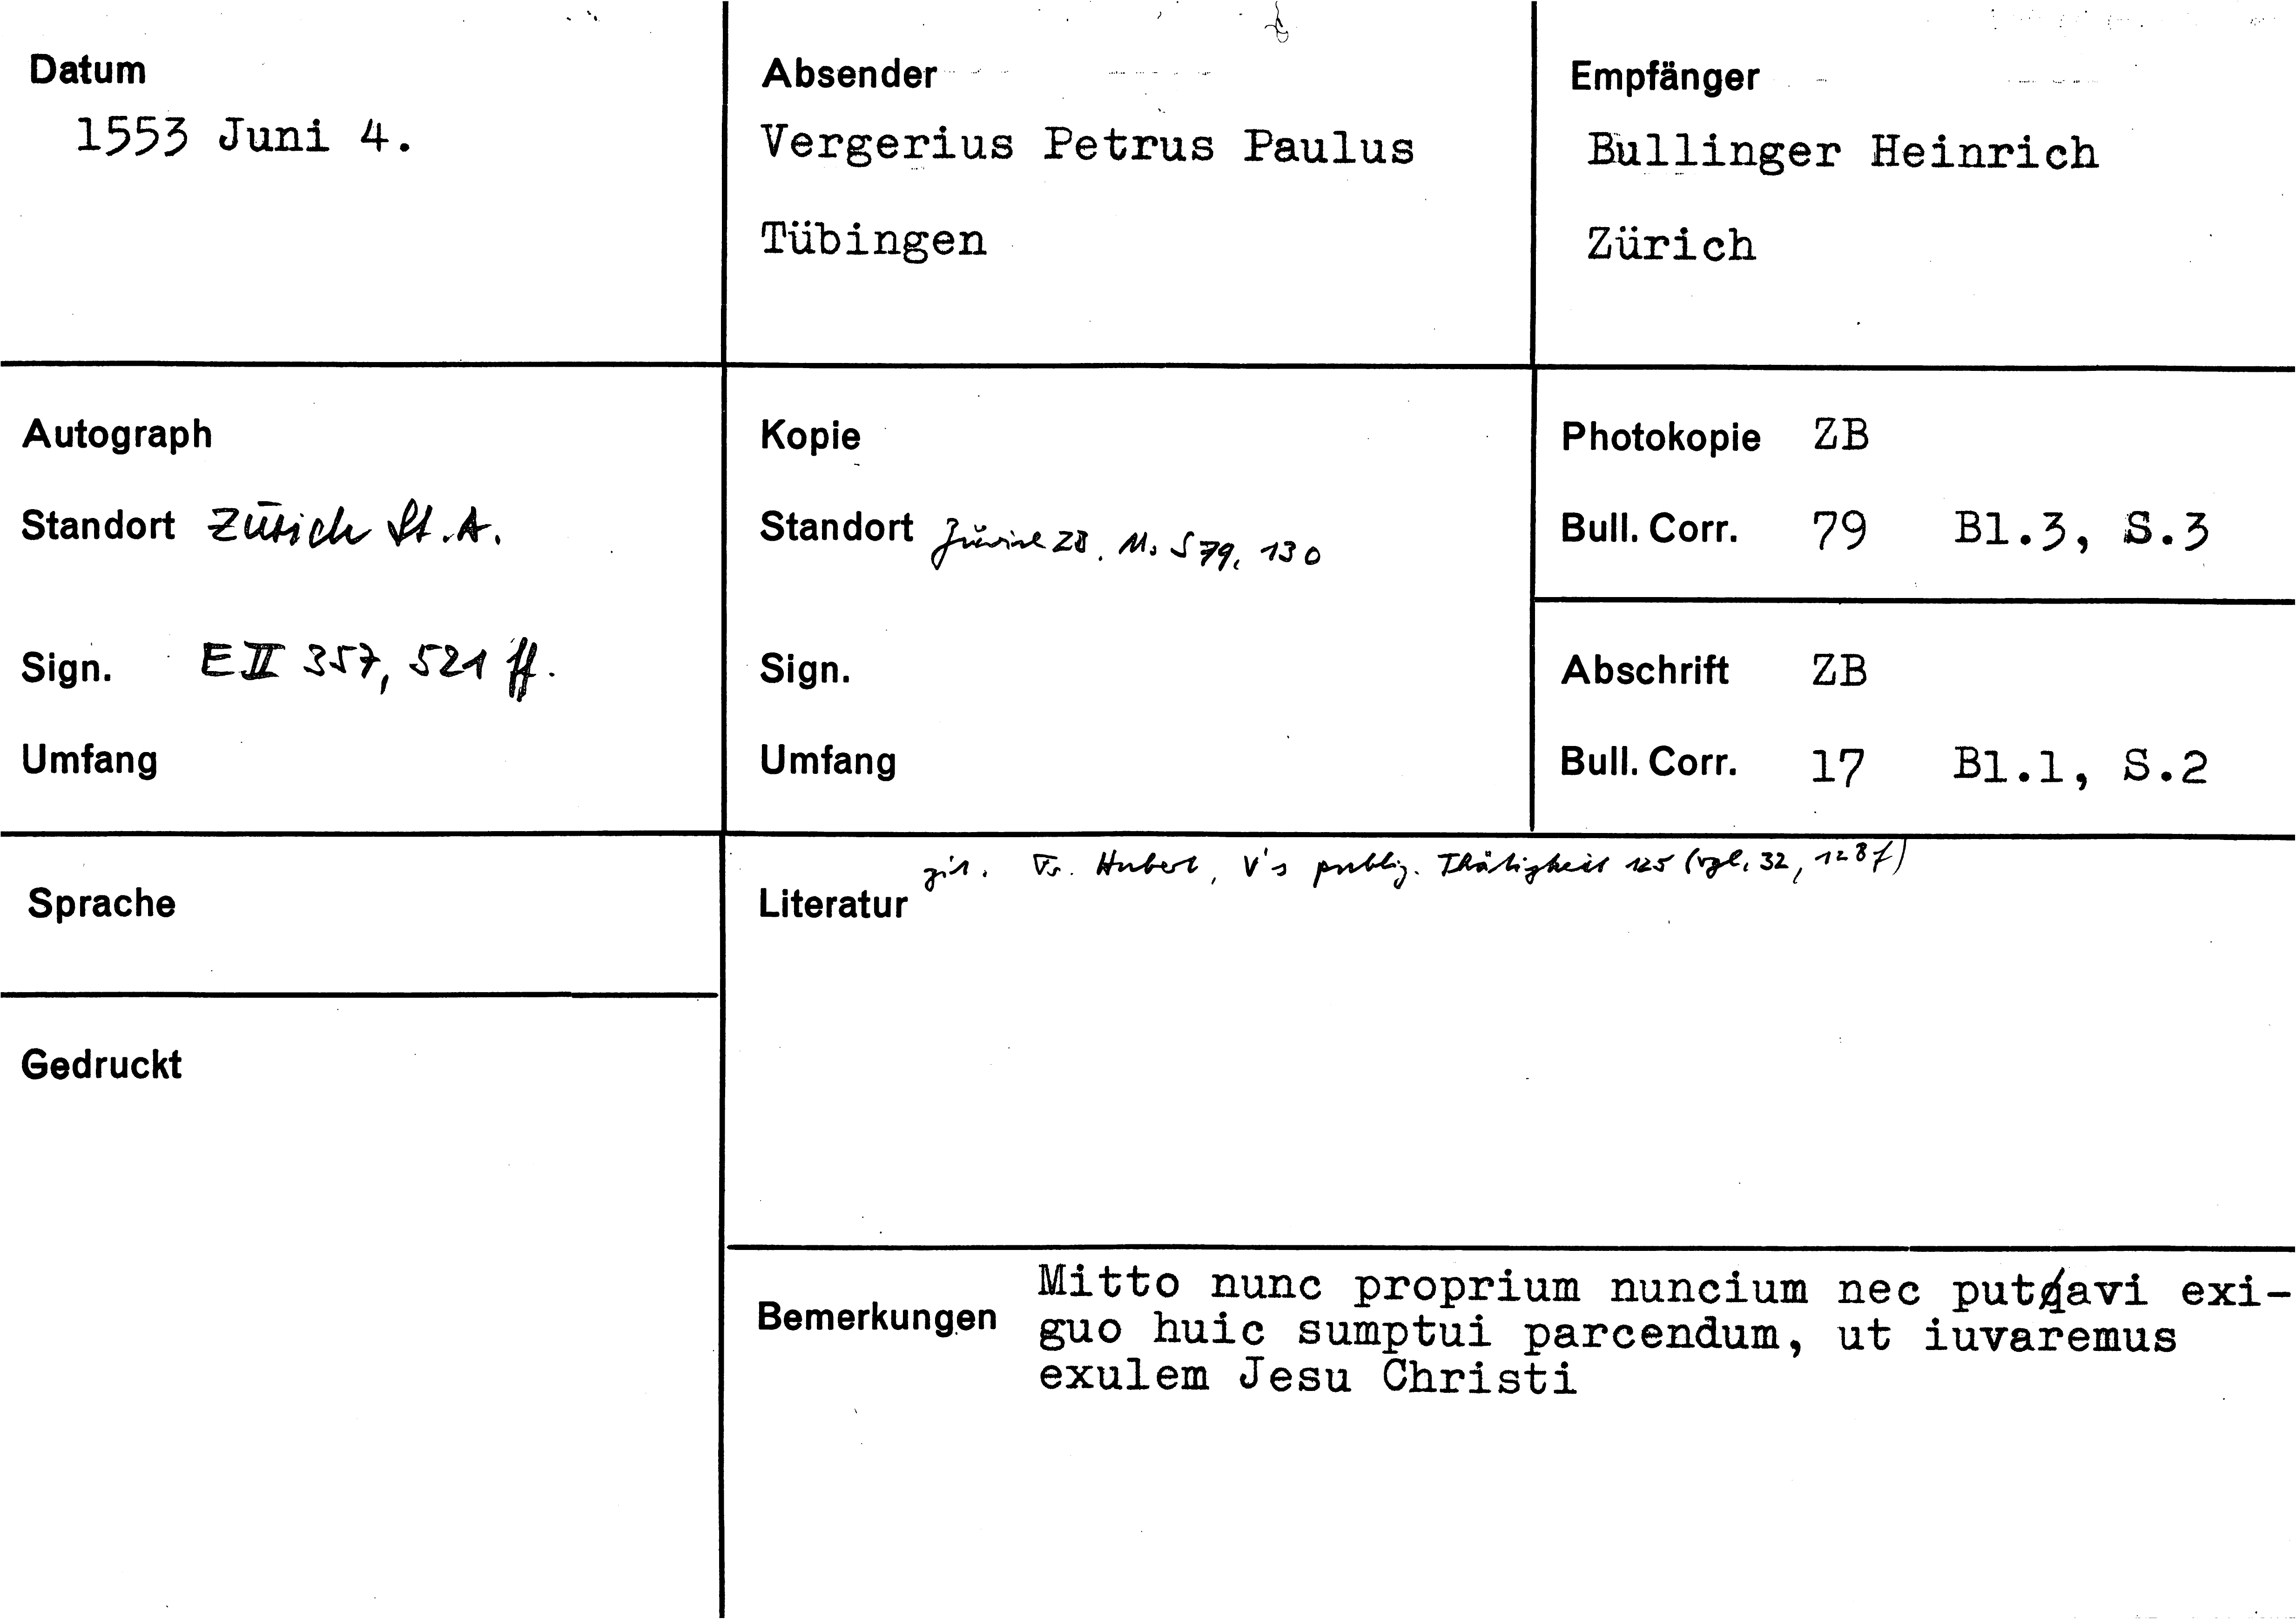 Datum
1553 Juni 4.
Absender
Vergerius Petrus Paulus
Tübingen
Empfänger
Bullinger Heinrich
Zürich
Autograph
Standort Zürich St.A.
Sign. E II 357, 521 ff.
Umfang
Kopie
Standort Zürich ZB. Ms S 79, 130
Sign.
Umfang
Photokopie ZB
Bull. Corr. 79 Bl.3, S.3
Abschrift ZB
Bull. Corr. 17 Bl.1, S.2
Sprache
Gedruckt
zit. Fr. Hubert, V's publiz. Thätigkeit 125 (vgl. 32, 128f)
Literatur
Bemerkungen
Mitto nunc proprium nuncium nec putavi exi-
guo huic sumptui parcendum, ut iuvaremus
exulem Jesu Christi